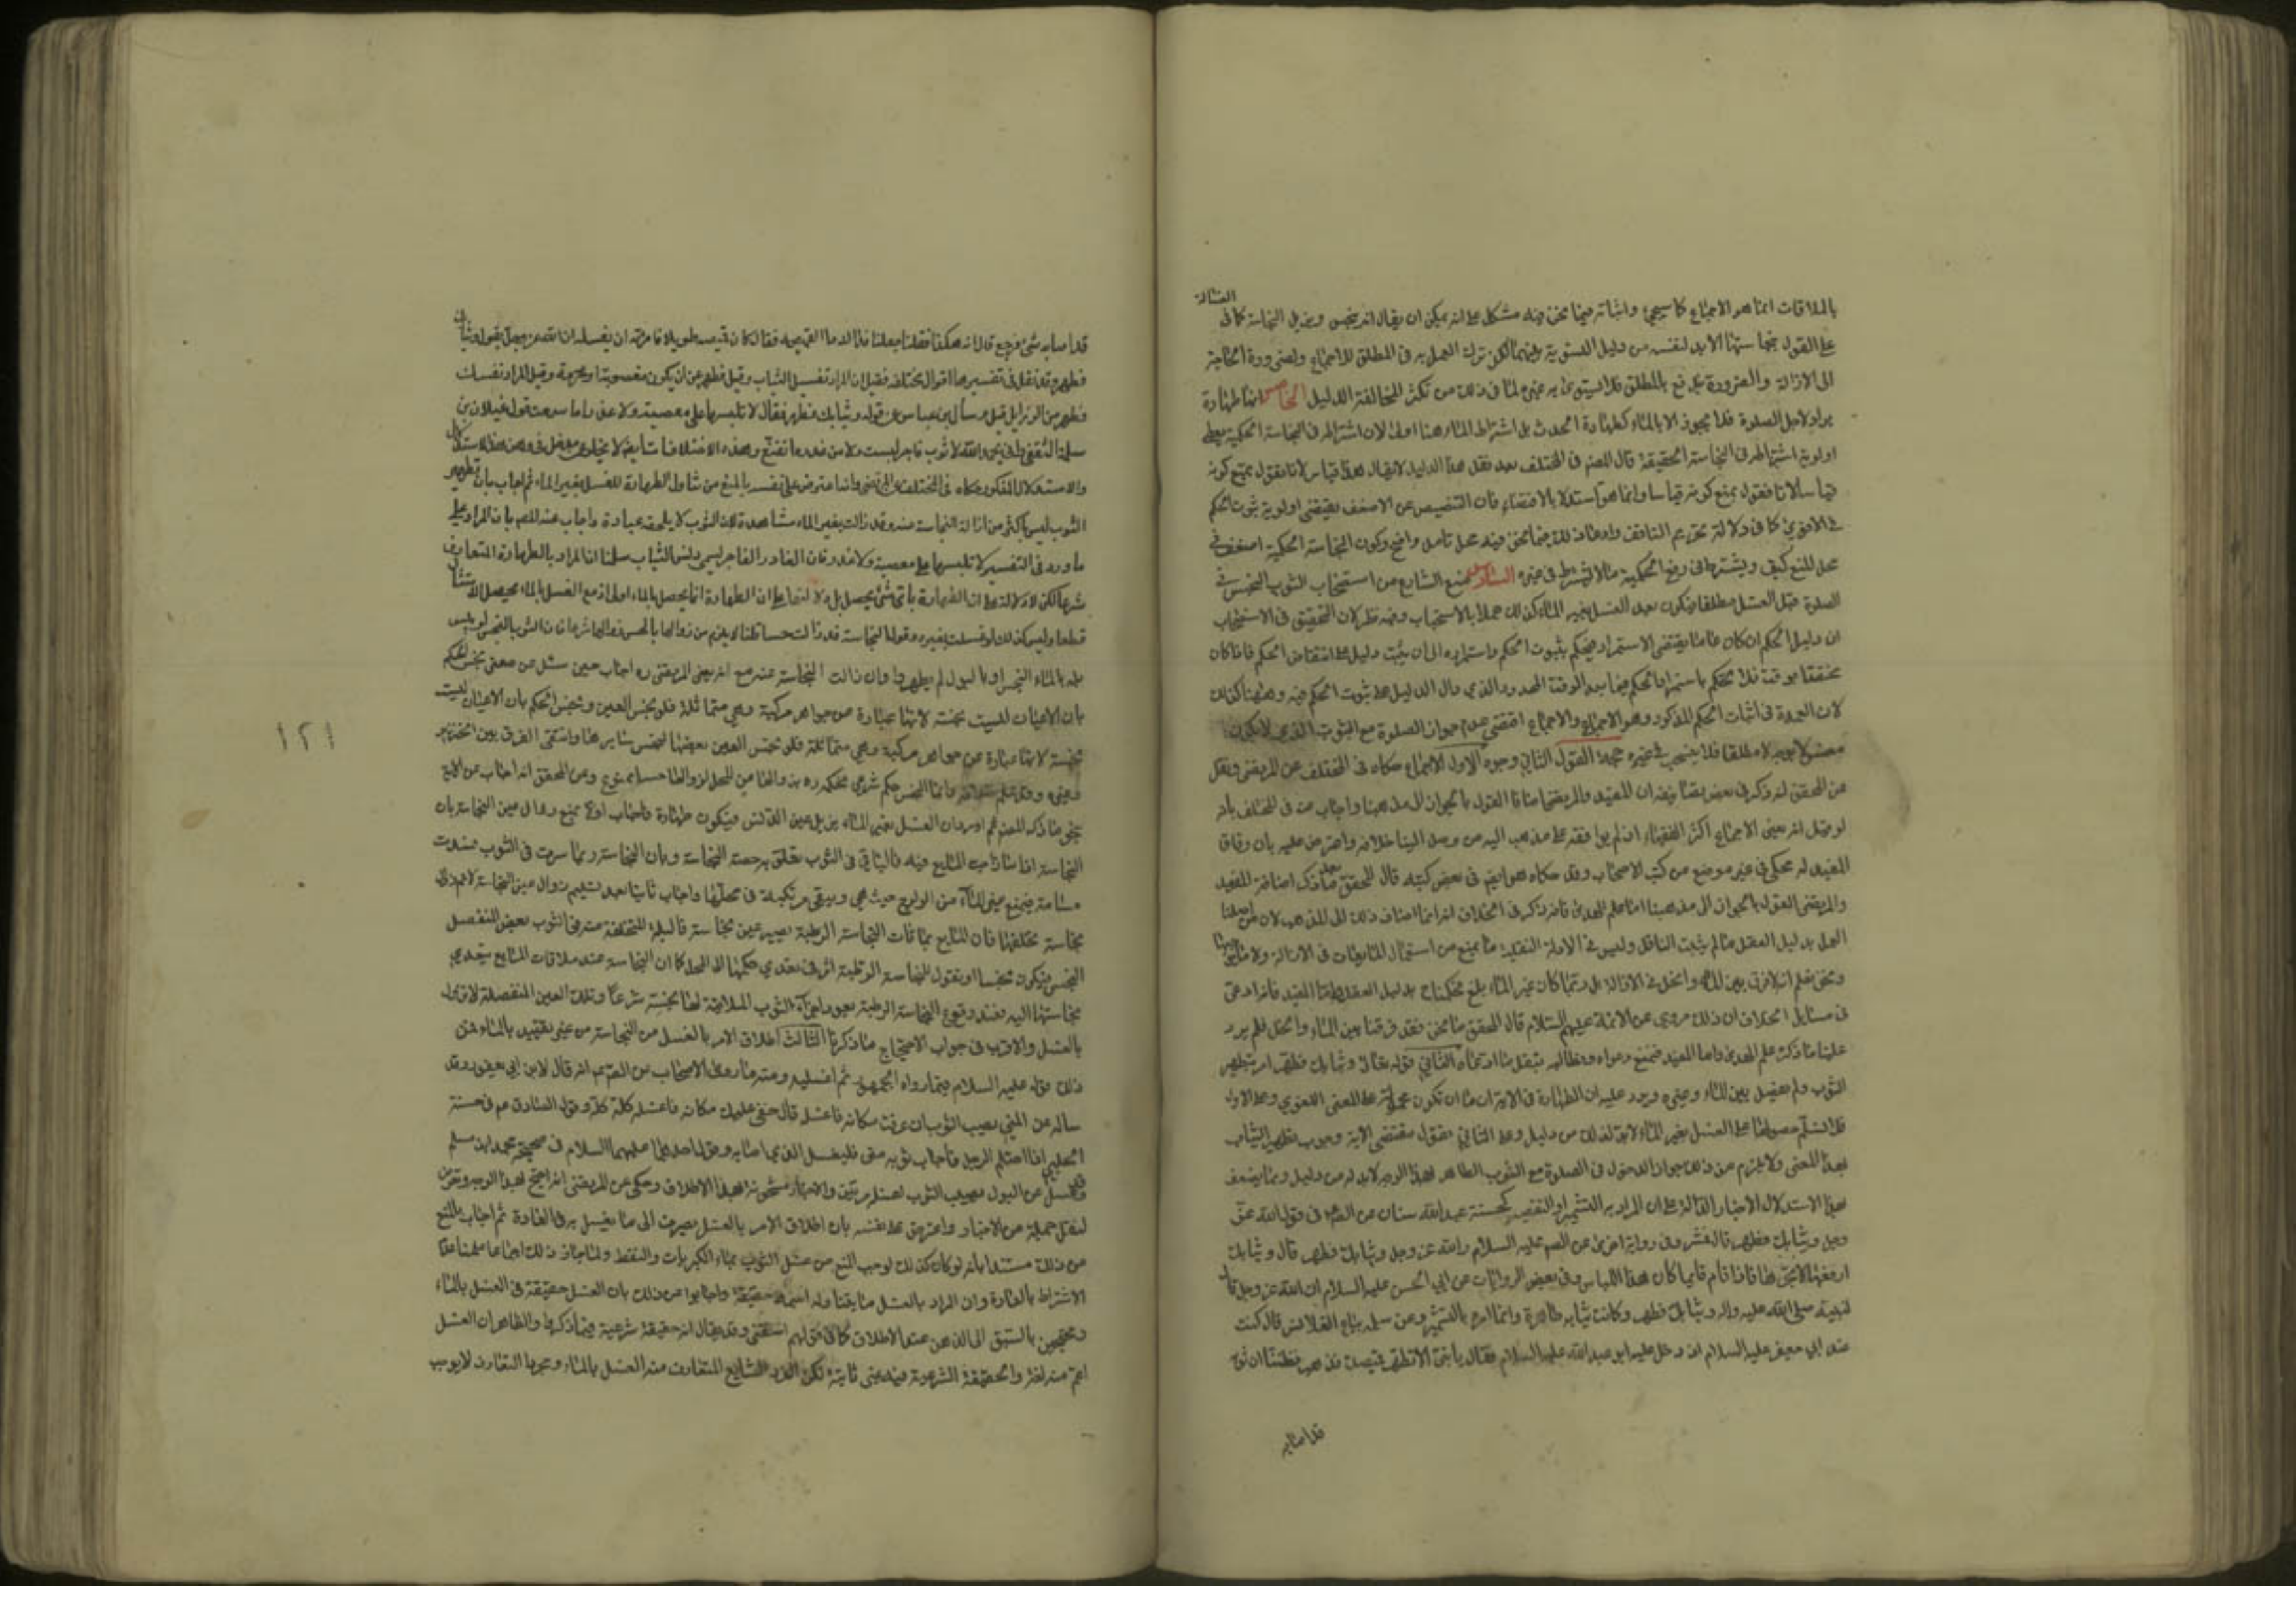 الغسالة
بالملاقات انما هو الاجماع كما سيجئ واثباته فيما نحن فيه مشكل على انه يمكن ان يقال انه ينجس ويزيل النجاسة كما في
على القول بنجاستها الا بد لنفسه من دليل التسوية بينهما لكن ترك العمل به في المطلق للاجماع ولضرورة الحاجة
الى الازالة والضرورة تندفع بالمطلق فلا يستوي به غيره لما في ذلك من تكثر المخالفة للدليل الخامس انها طهارة
يراد لاجل الصلوة فلا يجوز الا بالماء كطهارة الحدث بل اشتراط الماء هنا اولى لان اشتراطه في النجاسة الحكمية يعطى
اولوية اشتراطه في النجاسة الحقيقة قال المصنف في المختلف بعد نقل هذا الدليل لا يقال هذا قياس لانا نقول نمنع كونه
قياسا لانا نقول نمنع كونه قياسا وانما هو استدلال بالاقتضاء فان التنصيص عن الاضعف يقتضى اولوية ثبوت الحكم
في الاقوى كما في دلالة تحريم التافيف وادعاء ذلك فيما نحن فيه محل تامل واضح وكون النجاسة الحكمية اضعف في
محل المنع كيف ويشترط في رفع الحكمية ما لا يشترط في غيره السادس منع الشارع من استصحاب الثوب النجس في
الصلوة قبل الغسل مطلقا فيكون بعد الغسل بغير الماء كذلك عملا بالاستصحاب وفيه نظر لان التحقيق في الاستصحاب
ان دليل الحكم ان كان عاما يقتضى الاستمرار فيحكم بثبوت الحكم واستمراره الى ان يثبت دليل على انتقاض الحكم فاذا كان
مختصا بوقت فلا نحكم باستمرار الحكم فيما بعد الوقت المحدود الذي دل الدليل على ثبوت الحكم فيه وههنا كذلك
لان العمدة في اثبات الحكم المذكور وهو الاجماع والاجماع اقتضى عدم جواز الصلوة مع الثوب الذي لا يكون
مغسولا بوجه لا مطلقا فلا ينسحب في غيره حجة القول الثاني وجوه الاول الاجماع حكاه في المختلف عن المرتضى ونقل
عن المحقق انه ذكر في بعض تصانيفه ان المفيد والمرتضى اضافا القول بالجواز الى مذهبنا واجاب عنه في المختلف بانه
لو قيل انه يعنى الاجماع اكثر الفقهاء اذ لم يوافقه على ما ذهب اليه من وصل الينا خلافه واعترض عليه بان وفاق
المفيد له محكى في غير موضع من كتب الاصحاب وقد حكاه هو ايضا في بعض كتبه قال المحقق بعد ما ذكر اضافة المفيد
والمرتضى القول بالجواز الى مذهبنا اما علم الهدى فانه ذكر في الخلاف انه انما اضاف ذلك الى المذهب لان من اصلنا
العمل بدليل العقل ما لم يثبت الناقل وليس في الادلة النقلية ما يمنع من استعمال المائعات في الازالة ولا ما يوجبها
ونحن نعلم انه لا فرق بين الماء والخل في الازالة بل ربما كان غير الماء ابلغ فحكمنا ح بدليل العقل واما المفيد فانه ادعى
في مسايل الخلاف ان ذلك مروي عن الائمة عليهم السلام قال المحقق ما نحن فقد فرقنا بين الماء والخل فلم يرد
علينا ما ذكره علم الهدى واما المفيد فنمنع دعواه ونطالبه بنقل ما ادعاه الثاني قوله تعالى وثيابك فطهر امر بتطهير
الثوب ولم يفصل بين الماء وغيره ويرد عليه ان الطهارة في الاية اما ان تكون محمولة على المعنى اللغوي وعلى الاول
فلا نسلم حصولها على الغسل بغير الماء لابد لذلك من دليل وعلى الثاني نقول مقتضى الاية وجوب تطهير الثياب
بهذا المعنى ولا يلزم من ذلك جواز الدخول في الصلوة مع الثوب الطاهر بهذا الوجه لابد له من دليل ومما يضعف
هذا الاستدلال الاخبار الدالة على ان المراد به التشمير او التقصير كحسنة عبد الله سنان عن الصم في قول الله عز
وجل وثيابك فطهر قال فشمر وفي رواية اخرى عن الصم عليه السلام والله عز وجل وثيابك فطهر قال وثيابك
ارفعها لا تجرها فاذا قام قايمنا كان هذا اللباس وفي بعض الروايات عن ابي الحسن عليه السلام ان الله عز وجل قال
لنبيه صلى الله عليه واله وثيابك فطهر وكانت ثيابه طاهرة وانما امره بالتشمير وعن سلمة بياع القلانس قال كنت
عند ابي جعفر عليه السلام اذ دخل عليه ابو عبد الله عليه السلام فقال يا بني الا تطهر قميصك فذهب فظننا ان ثوبه
قد اصابه
قد اصابه شئ فرجع قال انه هكذا فقلنا جعلنا فداك ما لقميصه فقال كان قميصه طويلا فامرته ان يقصره ان الله عز وجل يقول وثيابك
فطهر وقد نقل في تفسيرها اقوال مختلفة فقيل ان المراد تغسيل الثياب وقيل فطهر عن ان يكون مغصوبة او محرمة وقيل المراد نفسك
فطهر من الرذايل قيل سأل ابن عباس عن قوله وثيابك فطهر فقال لا تلبسها على معصية ولا غدر اما سمعت قول غيلان بن
سلمة الثقفي واني بحمد الله لا ثوب فاجر لبست ولا من غدرة اتقنع وهذه الاختلافات ايضا لا يخلو عن مدخل في وهن هذا الاستدلال
والاستدلال المذكور حكاه في المختلف عن المرتضى وانه اعترض على نفسه بالمنع من تناول الطهارة للغسل بغير الماء ثم اجاب بان تطهير
الثوب ليس باكثر من ازالة النجاسة عنه وقد زالت بغير الماء مشاهدة لان الثوب لا يلحقه عبادة واجاب عنه المصنف بان المراد على
ما ورد في التفسير لا تلبسها على معصية ولا غدر فان الغادر الفاجر يسمى دنس الثياب سلمنا ان المراد بالطهارة المتعارف
شرعا لكن لا دلالة على ان الطهارة باي شئ يحصل بل دلالتها على ان الطهارة انما يحصل بالماء اولى اذ مع الغسل بالماء يحصل الامتثال
قطعا وليس كذلك لو غسلت بغيره وقوله النجاسة قد زالت حسا قلنا لا يلزم من زوالها بالحس زوالها شرعا فان الثوب النجس لو يبس
بله بالماء النجس او بالبول لم يطهر وان زالت النجاسة عنه مع انه يعنى المرتضى ره اجاب حين سئل عن معنى نجس الحكم
بان الاعيان ليست نجسة لانها عبارة عن جواهر مركبة وهي متماثلة فلو نجس العين ونجس الحكم بان الاعيان ليست
نجسة لانها عبارة عن جواهر مركبة وهي متماثلة فلو نجس العين بعضها لنجس سايرها وانتفى الفرق بين الخنزير
وغيره وقد علم خلافه وانما النجس حكم شرعي فحكمه ره بزوالها عن المحل لزوالها حسا ممنوع وعن المحقق انه اجاب عن الاية
بنحو ما ذكره المصنف ثم اورد ان الغسل بغير الماء يزيل عين القاذر فيكون طهارة فاجاب اولا بمنع زوال عين النجاسة بان
النجاسة اذا مازجت المايع فيه فالباقي في الثوب تعلق به حصة النجاسة وبان النجاسة ربما سرت في الثوب فسدت
مسامه فتمنع غير الماء من الولوج حيث هي ويبقى مرتبكة في محلها واجاب ثانيا بعد تسليم زوال عين النجاسة لا نم زوال
نجاسة يخلفها فان المايع بملاقات النجاسة الرطبة يصير عين نجاسة فالبلة المتخلفة منه في الثوب بعض المنفصل
النجس فيكون نجسا او نقول للنجاسة الرطبة اثر في تعدي حكمها الى المحل كما ان النجاسة عند ملاقات المايع تتعدى
نجاستها اليه فعند وقوع النجاسة الرطبة يعود اجزاء الثوب الملاقية لها نجسة شرعا وتلك العين المنفصلة لا تزول
بالغسل والاقرب في جواب الاحتجاج ما ذكرنا الثالث اطلاق الامر بالغسل من النجاسة من غير تقييد بالماء فمن
ذلك قوله عليه السلام فيما رواه الجمهور ثم اغسليه ومنه ما روى الاصحاب عن الصم انه قال لابن ابي يعفور وقد
سأله عن المني يصيب الثوب ان عرفت مكانه فاغسله قال خفى عليك مكانه فاغسله كله وقول الصادق عم في حسنة
الحلبي اذا احتلم الرجل فاصاب ثوبه منى فليغسل الذي اصابه وقول احدهما عليهما السلام في صحيحة محمد بن مسلم
وقد سئل عن البول يصيب الثوب اغسله مرتين والاخبار مشحونة بهذا الاطلاق وحكى عن المرتضى انه احتج بهذا الوجه وتعرض
لنقل جملة من الاخبار واعترض على نفسه بان اطلاق الامر بالغسل يصرف الى ما يغسل به في العادة ثم اجاب بالمنع
من ذلك مستندا بانه لو كان كذلك لوجب المنع من غسل الثوب بماء الكبريت والنفط ولما جاز ذلك اجماعا علمنا عدم
الاشتراط بالعادة وان المراد بالغسل ما يتناوله اسمه حقيقة واجابوا عن ذلك بان الغسل حقيقة في الغسل بالماء
وتحتجين بالسبق الى الذهن عند الاطلاق كما في قولهم اسقنى وقد يقال انه حقيقة شرعية فيما ذكرها والظاهر ان الغسل
اعم منه لغة والحقيقة الشرعية فيه غير ثابتة لكن الفرد الشايع المتعارف منه الغسل بالماء ومجرد التعارف لا يوجب
١٢١